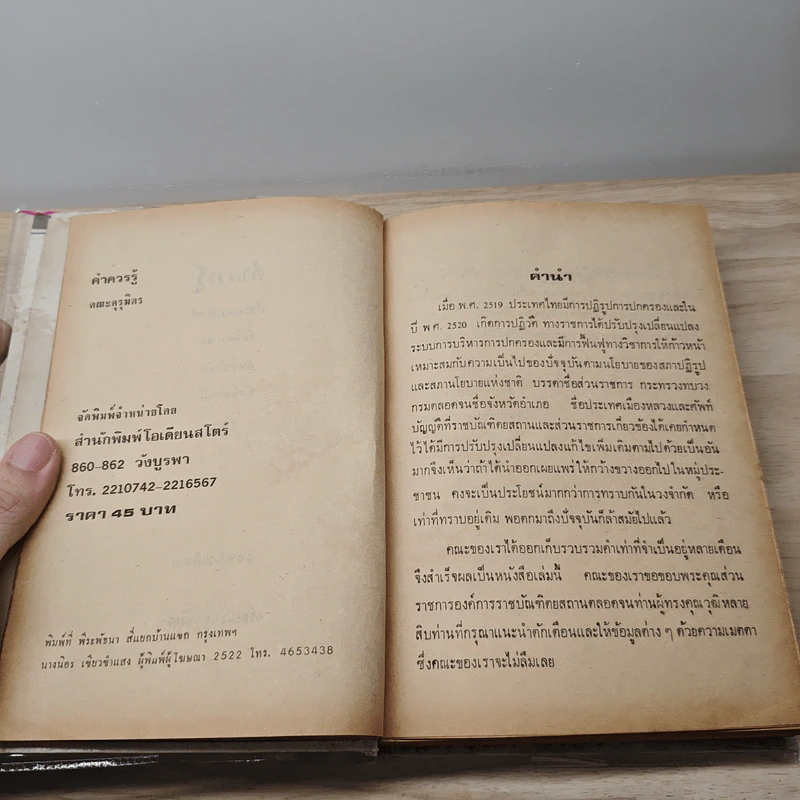 คำควรรู้
คณะคุรุมิตร
จัดพิมพ์จำหน่ายโดย
สำนักพิมพ์โอเดียนสโตร์
860-862 วังบูรพา
โทร. 2210742-2216567
ราคา 45 บาท
พิมพ์ที่ พีระพัธนา สี่แยกบ้านแขก กรุงเทพฯ
นางนิอร เขียวขำแสง ผู้พิมพ์ผู้โฆษณา 2522 โทร. 4653438
คำนำ
เมื่อ พ.ศ. 2519 ประเทศไทยมีการปฏิรูปการปกครองและใน
ปี พ.ศ. 2520 เกิดการปฏิวัติ ทางราชการได้ปรับปรุงเปลี่ยนแปลง
ระบบการบริหารการปกครองและมีการฟื้นฟูทางวิชาการให้ก้าวหน้า
เหมาะสมกับความเป็นไปของปัจจุบันตามนโยบายของสภาปฏิรูป
และสภานโยบายแห่งชาติ บรรดาชื่อส่วนราชการ กระทรวงทบวง
กรมตลอดจนชื่อจังหวัดอำเภอ ชื่อประเทศเมืองหลวงและศัพท์
บัญญัติที่ราชบัณฑิตยสถานและส่วนราชการเกี่ยวข้องได้เคยกำหนด
ไว้ได้มีการปรับปรุงเปลี่ยนแปลงแก้ไขเพิ่มเติมตามไปด้วยเป็นอัน
มากจึงเห็นว่าถ้าได้นำออกเผยแพร่ให้กว้างขวางออกไปในหมู่ประ-
ชาชน คงจะเป็นประโยชน์มากกว่าการทราบกันในวงจำกัด หรือ
เท่าที่ทราบอยู่เดิม พอตกมาถึงปัจจุบันก็ล้าสมัยไปแล้ว
คณะของเราได้ออกเก็บรวบรวมคำเท่าที่จำเป็นอยู่หลายเดือน
จึงสำเร็จผลเป็นหนังสือเล่มนี้ คณะของเราขอขอบพระคุณส่วน
ราชการองค์การราชบัณฑิตยสถานตลอดจนท่านผู้ทรงคุณวุฒิหลาย
สิบท่านที่กรุณาแนะนำตักเตือนและให้ข้อมูลต่าง ๆ ด้วยความเมตตา
ซึ่งคณะของเราจะไม่ลืมเลย